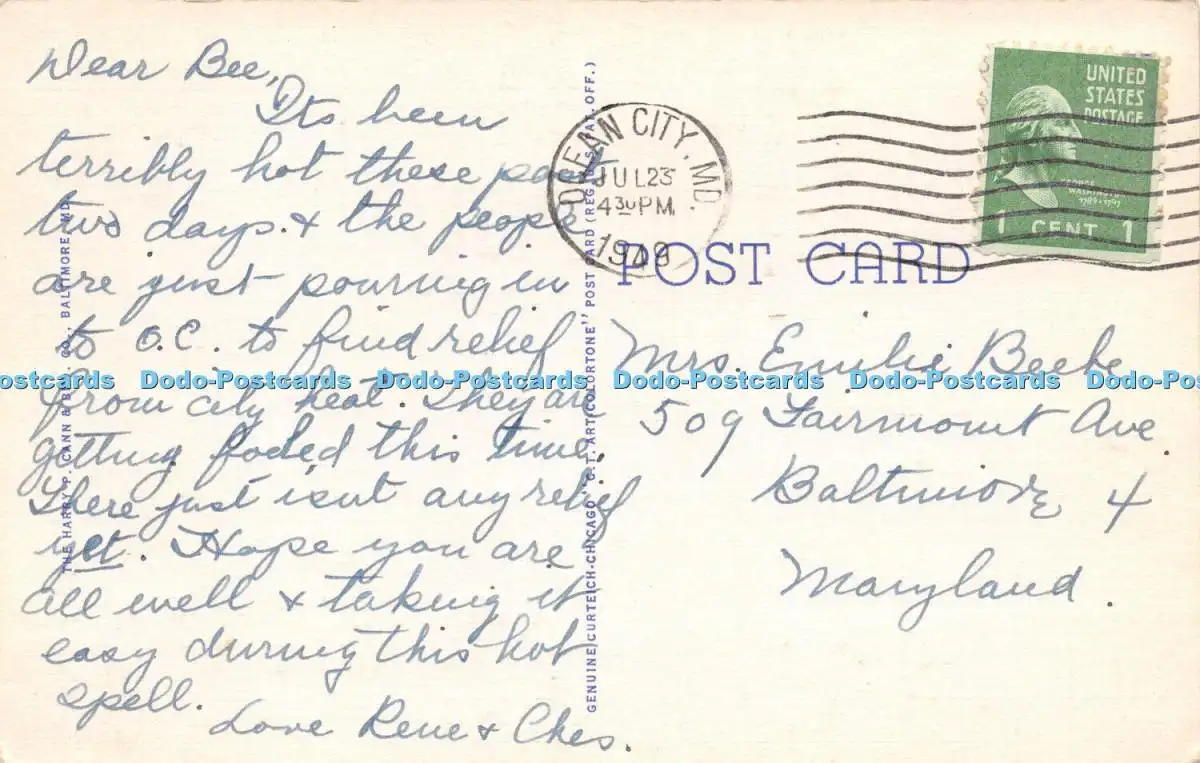 Dear Bee,
Its been
terribly hot these past
two days & the people
are just pouring in
to O.C. to find relief
from city heat. They are
getting fooled this time.
There just isnt any relief
yet. Hope you are
all well & taking it
easy during this hot
spell.
Love Rene & Ches.
THE HARRY P. CANN & BRO. CO., BALTIMORE, MD.
GENUINE CURTEICH-CHICAGO "C.T. ART-COLORTONE" POST CARD (REG. U.S. PAT. OFF.)
OCEAN CITY, MD.
JUL 23
4 30 PM
UNITED
STATES
POSTAGE
GEORGE
WASHINGTON
1789-1797
1 CENT 1
POST CARD
Mrs. Emilie Beebe
509 Fairmount Ave.
Baltimore 4
Maryland.
Dodo-Postcards Dodo-Postcards Dodo-Postcards Dodo-Postcards Dodo-Postcards